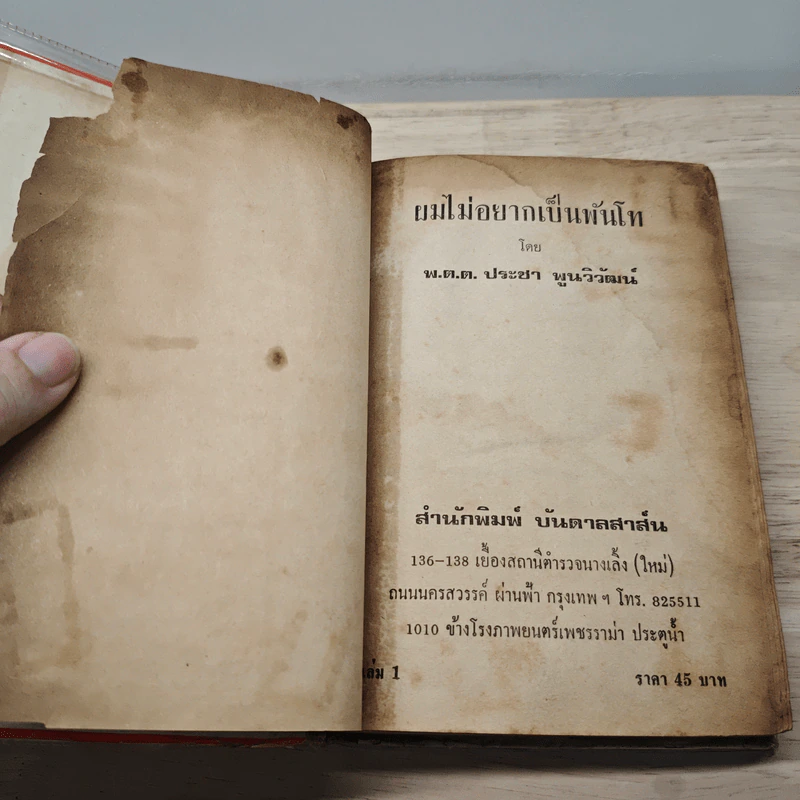 ผมไม่อยากเป็นพันโท
โดย
พ.ต.ต. ประชา พูนวิวัฒน์
สำนักพิมพ์ บันดาลสาส์น
136–138 เยื้องสถานีตำรวจนางเลิ้ง (ใหม่)
ถนนนครสวรรค์ ผ่านฟ้า กรุงเทพ ฯ โทร. 825511
1010 ข้างโรงภาพยนตร์เพชรราม่า ประตูน้ำ
เล่ม 1 ราคา 45 บาท